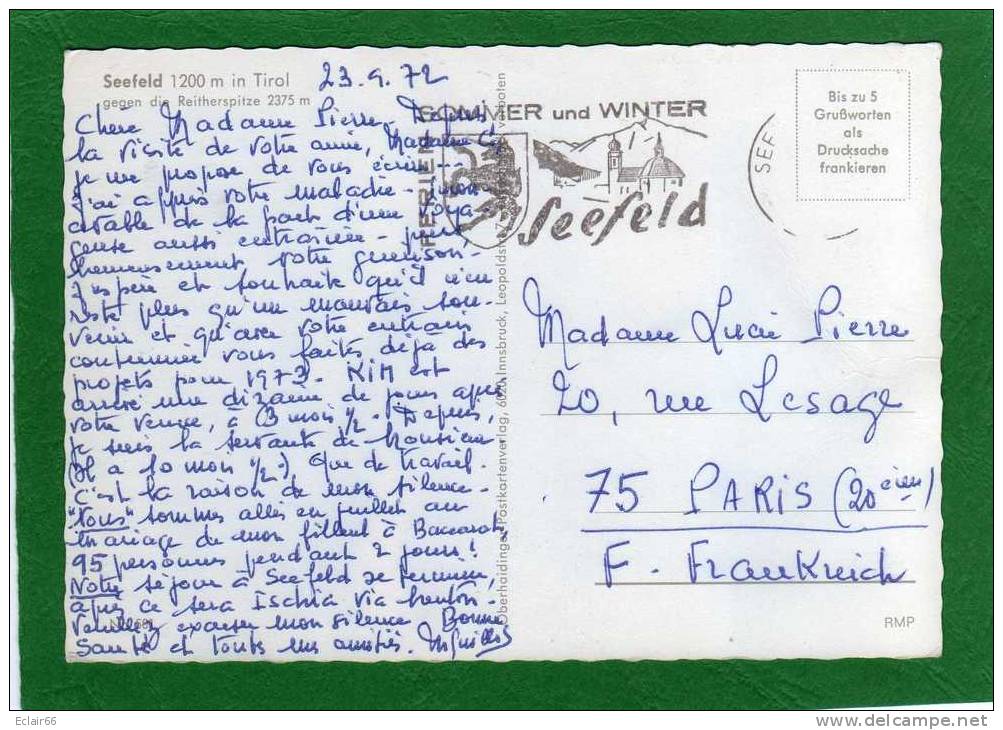 Seefeld 1200 m in Tirol
gegen die Reitherspitze 2375 m
23.9.72
Chère Madame Pierre - Depuis
la visite de votre amie, Madame C
je me propose de vous écrire -
J'ai appris votre maladie -
de la part d'une voya-
geuse aussi entraînée - heu-
reusement votre guérison -
J'espère et souhaite qu'il n'en
reste plus qu'un mauvais sou-
venir et qu'avec votre entrain
coutumier vous faites déjà des
projets pour 1973. KIM est
arrivé une dizaine de jours après
votre venue, à 3 mois ½. Depuis,
je suis la servante de Monsieur
(Il a 10 mois ½.) Que de travail.
C'est la raison de mon silence -
"Tous" sommes allés en juillet au
mariage de mon filleul à Baccarat,
95 personnes pendant 2 jours!
Notre séjour à Seefeld se termine,
après ce sera Ischia via Menton -
Veuillez excuser mon silence. Bonne
Santé et toutes mes amitiés.
Oberhaidinger Postkartenverlag, 6020 Innsbruck, Leopoldstr. verboten
FERIEN
SOMMER und WINTER
Seefeld
SEE
Bis zu 5
Grußworten
als
Drucksache
frankieren
Madame Lucie Pierre
20, rue Lesage
75 PARIS (20ème)
F. Frankreich
RMP
Eclair66
www.delcampe.net